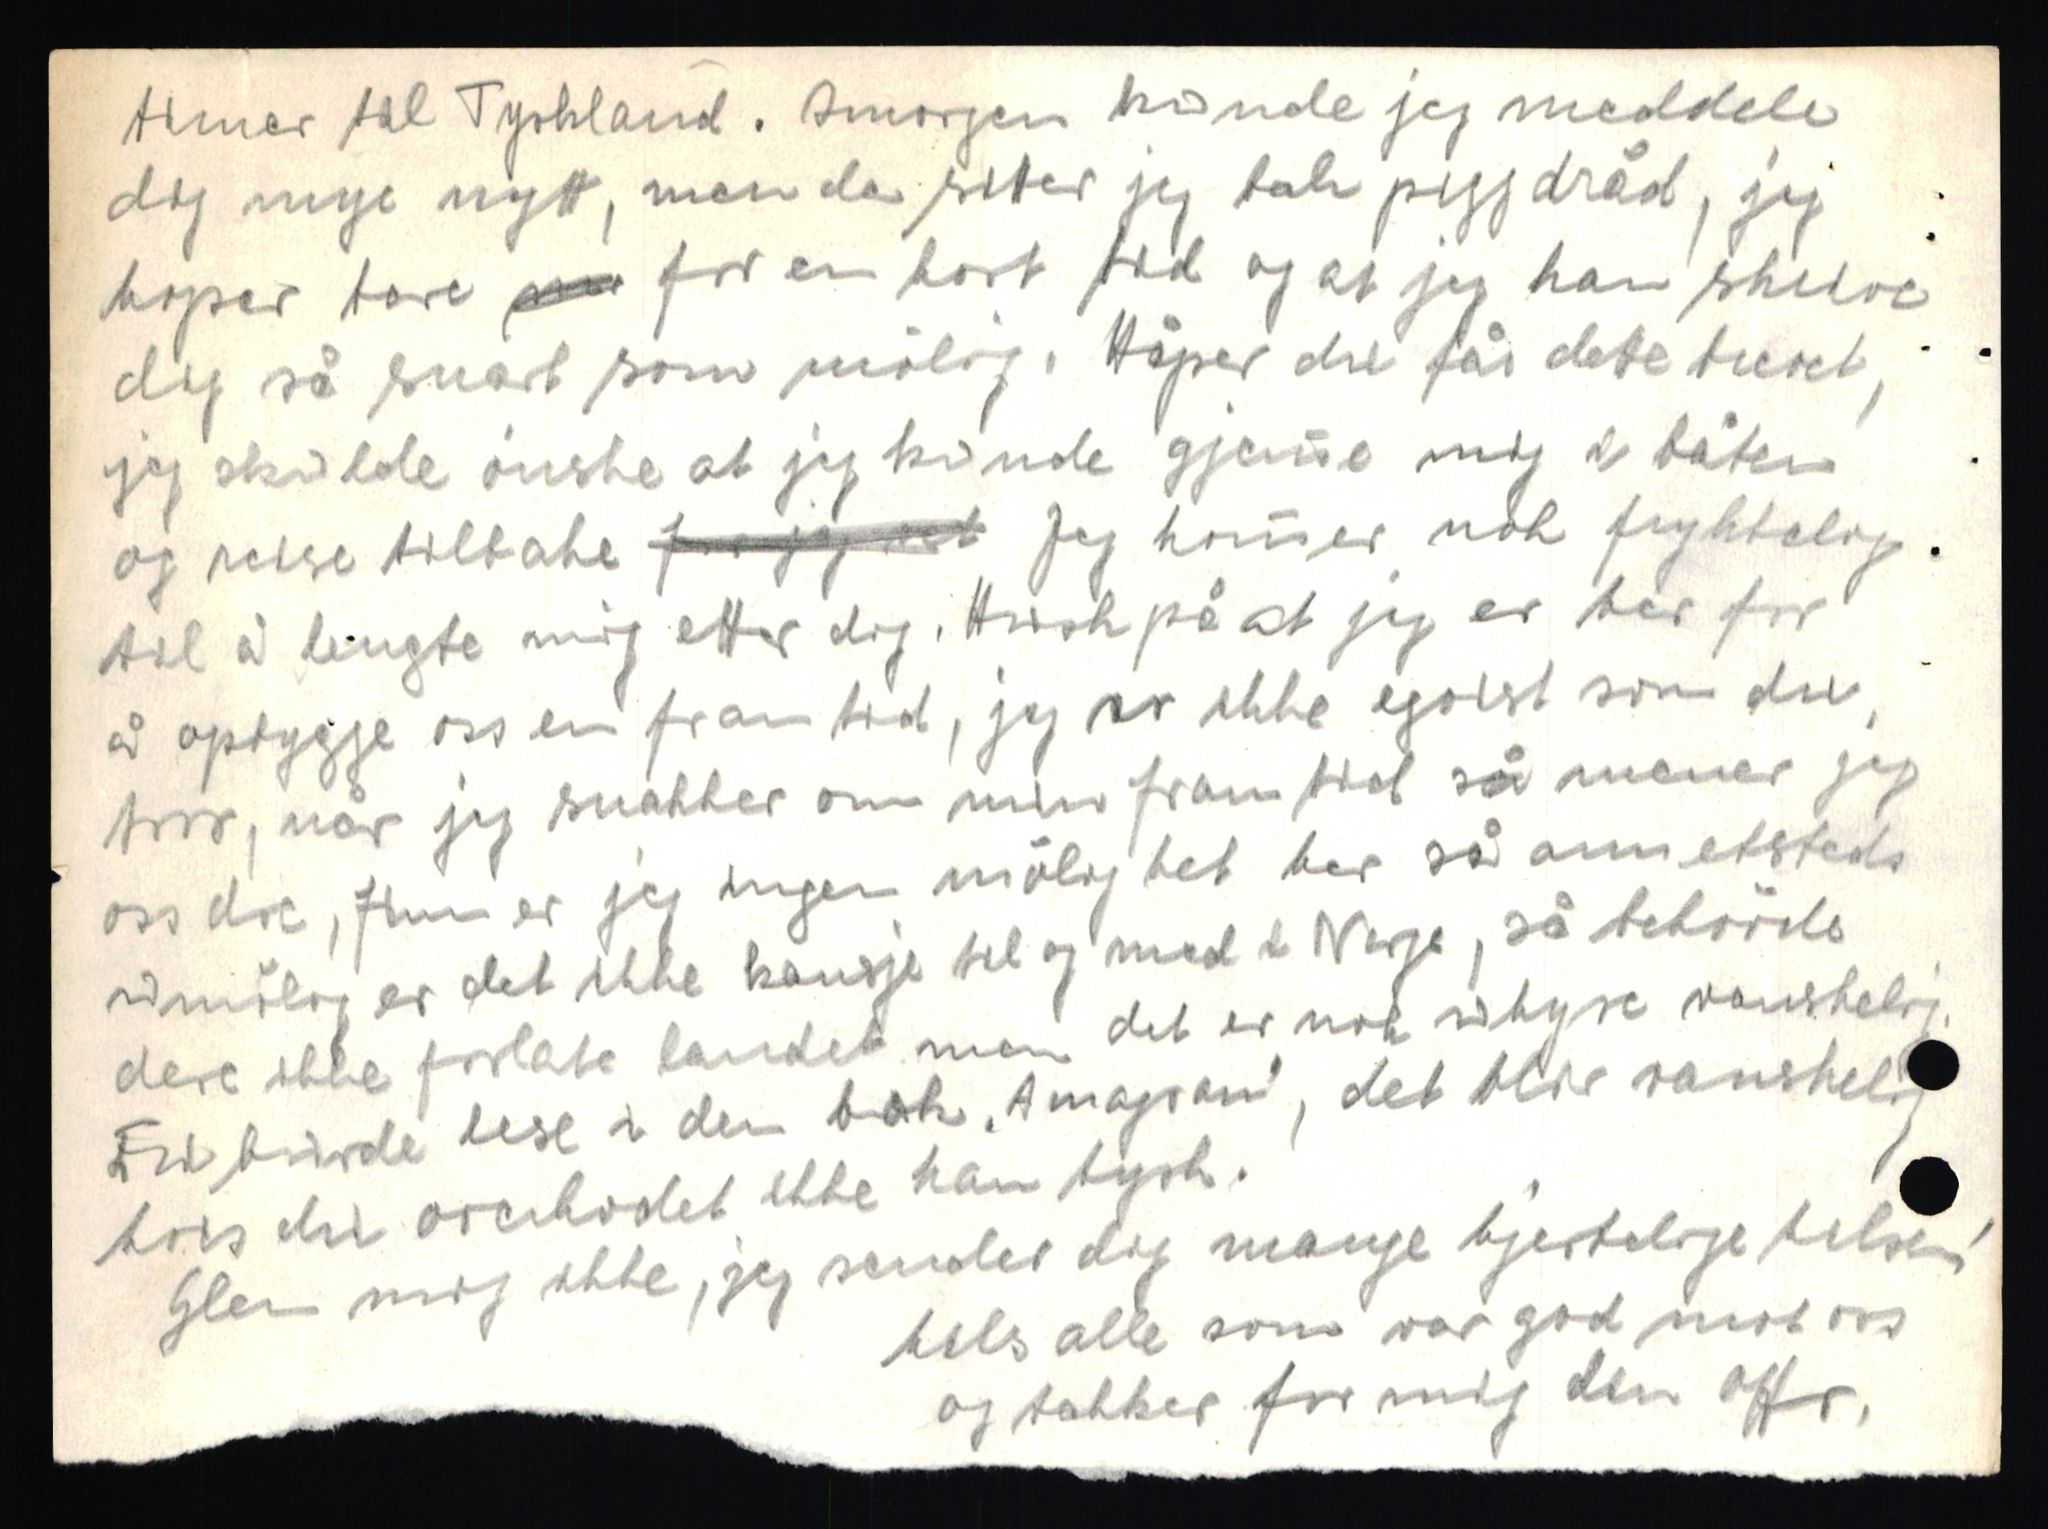 timer til Tyskland. Imorgen kunde jeg meddele
dig mye nytt, men da siter jeg bak piggdråd, jeg
hoper bare for en kort tid og at jeg kan skrive
dig så snart som mölig. Håper du får dete brevet,
jeg skulde önske at jeg kunde gjem̄e mig i båten
og reise tilbake Jeg kom̄er nok fryktelig
til å lengte mig etter dig. Husk på at jeg er her for
å opbygge oss en framtid, jeg er ikke egoist som du
tror, når jeg snakker om min framtid så mener jeg
oss dre, finner jeg ingen mölighet her så annetsteds
umölig er det ikke kansje til og med i Norge, så behövde
dere ikke forlate landet men det er nok uhyre vanskelig.
Du burde lese i den bok „Anagram“, det blir vanskelig
hvis du overhodet ikke kan tysk.
Glem mig ikke, jeg sender dig mange hjertelige hilsen
hils alle som var god mot oss
og takker for mig den offr.